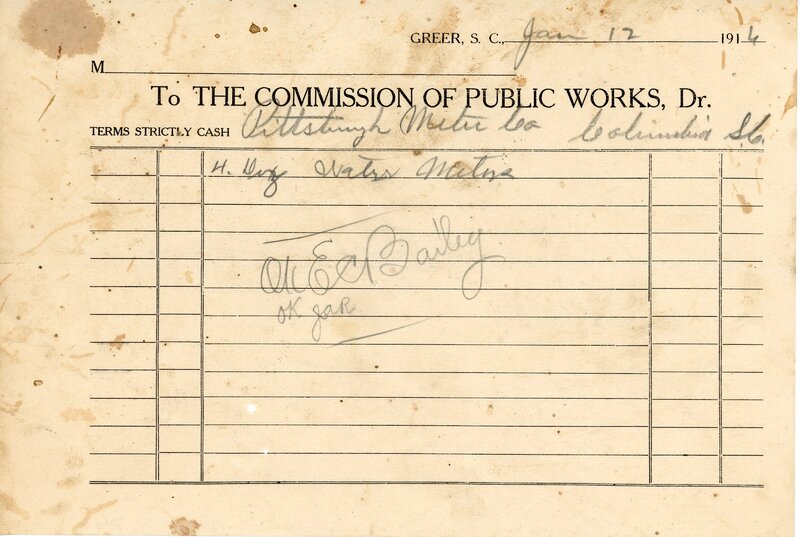 GREER, S. C., Jan 12 1916
M
To THE COMMISSION OF PUBLIC WORKS, Dr.
TERMS STRICTLY CASH Pittsburgh Meter Co Columbia S.C.
4. Doz Water Meters
OK E C Bailey
OK JAR